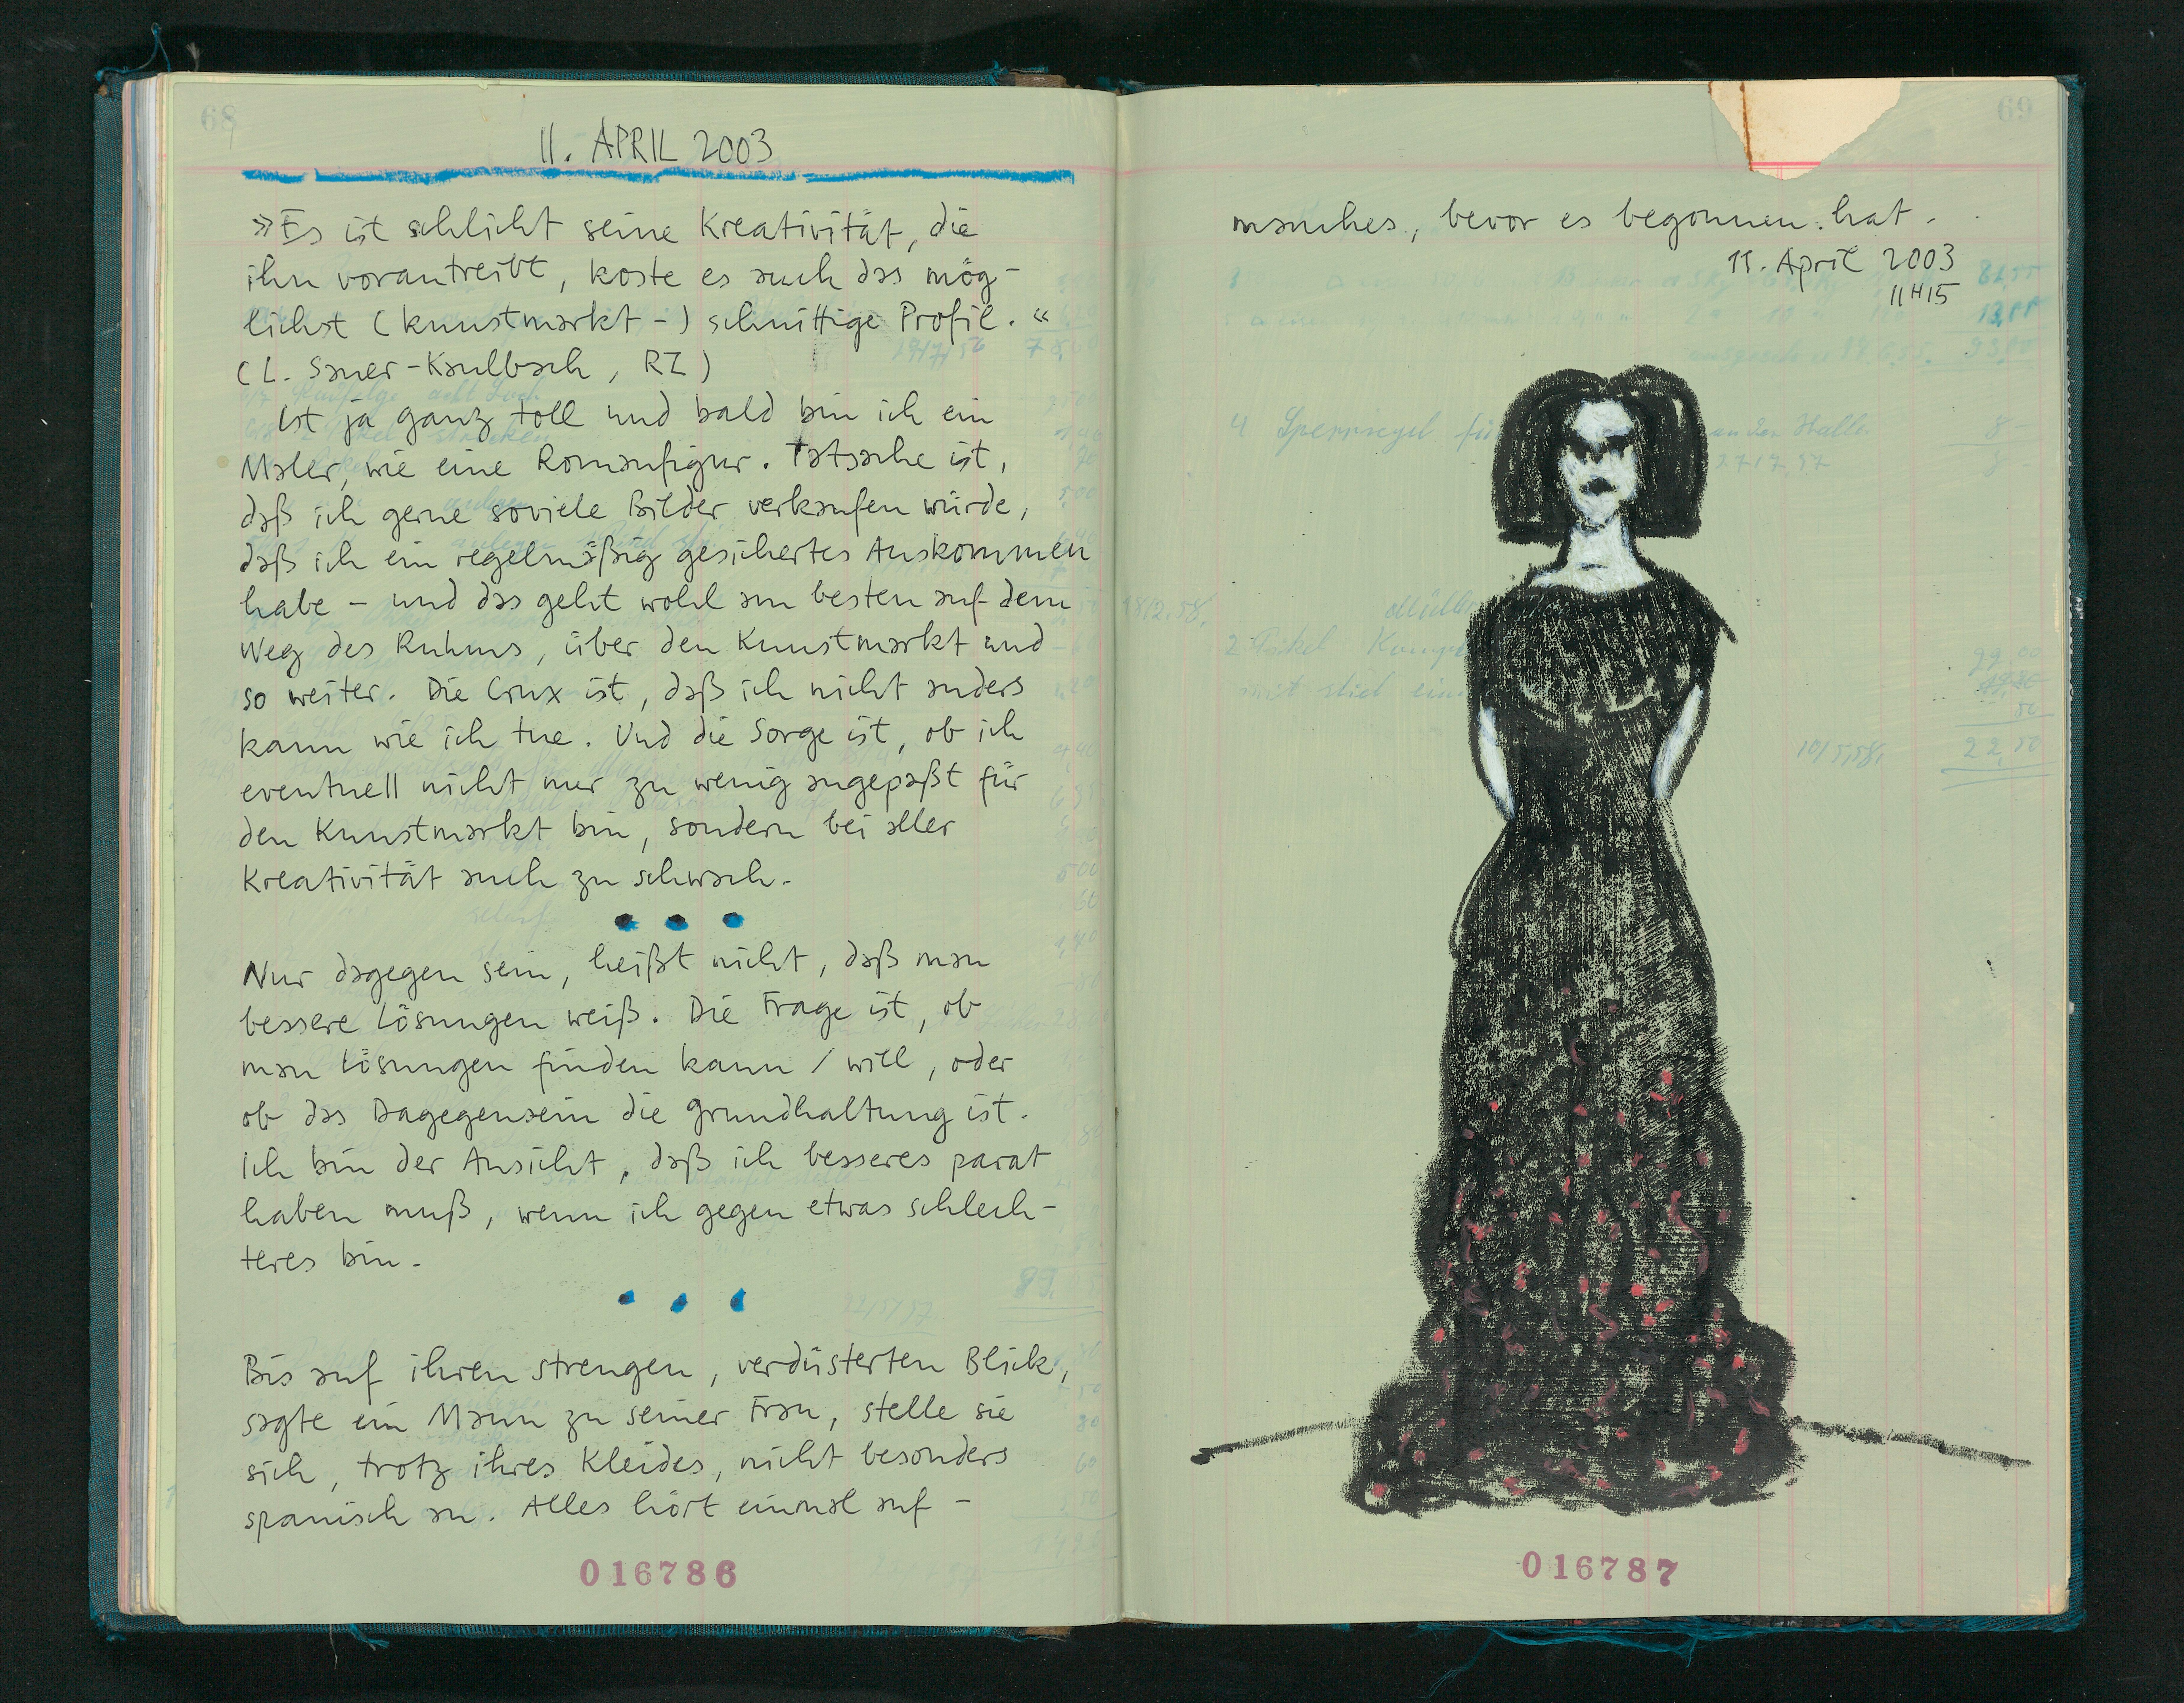 68
11. APRIL 2003
»Es ist schlicht seine Kreativität, die
ihn vorantreibt, koste es auch das mög-
lichst (kunstmarkt-) schnittige Profil.«
(L. Sauer-Kaulbach, RZ)
Ist ja ganz toll und bald bin ich ein
Maler, wie eine Romanfigur. Tatsache ist,
daß ich gerne soviele Bilder verkaufen würde,
daß ich ein regelmäßig gesichertes Auskommen
habe – und das geht wohl am besten auf dem
Weg des Ruhms, über den Kunstmarkt und
so weiter. Die Crux ist, daß ich nicht anders
kann wie ich tue. Und die Sorge ist, ob ich
eventuell nicht nur zu wenig angepaßt für
den Kunstmarkt bin, sondern bei aller
Kreativität auch zu schwach.
Nur dagegen sein, heißt nicht, daß man
bessere Lösungen weiß. Die Frage ist, ob
man Lösungen finden kann / will, oder
ob das Dagegensein die Grundhaltung ist.
Ich bin der Ansicht, daß ich besseres parat
haben muß, wenn ich gegen etwas schlech-
teres bin.
Bis auf ihren strengen, verdüsterten Blick,
sagte ein Mann zu seiner Frau, stelle sie
sich, trotz ihres Kleides, nicht besonders
spanisch an. Alles hört einmal auf –
016786
69
manches, bevor es begonnen hat.
11. April 2003
11H15
4 Sperrriegel fü an der Halle 8
2717,57
18/2.58,
2
mit stiel ein
10/5,58, 22,50
016787